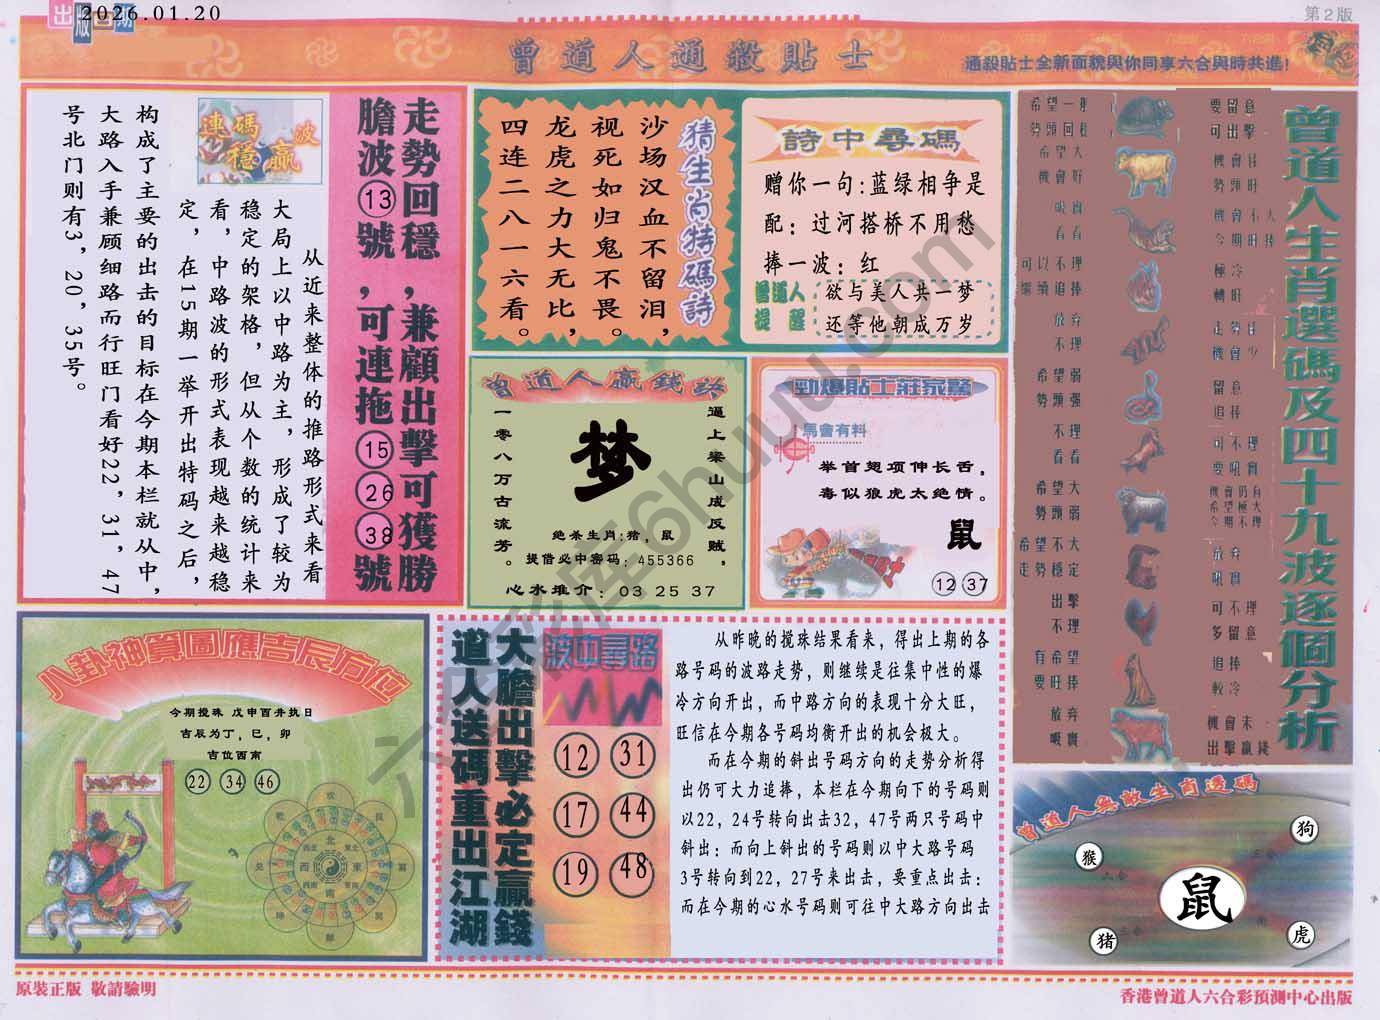 出版日期
2026.01.20
第2版
曾道人通殺貼士
通殺貼士全新面貌與你同享六合與時共進!
走勢回穩,兼顧出擊可獲勝
膽波⑬號,可連拖⑮㉖㊳號
連碼穩赢波
从近来整体的推路形式来看
大局上以中路为主,形成了较为
稳定的架格,但从个数的统计来
看,中路波的形式表现越来越稳
定,在15期一举开出特码之后,
构成了主要的出击的目标在今期本栏就从中,
大路入手兼顾细路而行旺门看好22,31,47
号北门则有3,20,35号。
猜生肖特碼詩
沙场汉血不留泪,
视死如归鬼不畏。
龙虎之力大无比,
四连二八一六看。
詩中尋碼
赠你一句:蓝绿相争是
配:过河搭桥不用愁
捧一波:红
曾道人提醒
欲与美人共一梦
还等他朝成万岁
曾道人赢錢
逼上梁山成反贼,
梦
一零八万古流芳。
绝杀生肖:猪,鼠
提借必中密码:455366
心水推介:03 25 37
勁爆貼士莊家驚
馬會有料
举首翅项伸长舌,
毒似狼虎太绝情。
鼠
12 37
曾道人生肖選碼及四十九波逐個分析
希望一般
勢頭回穩
要留意
可出擊
希望大
機會好
機會佳
勢頭旺
吸實
看看
機會不大
今期旺捧
可以不理
繼續追捧
極冷
轉旺
放弃
不理
機會少
希望弱
勢頭强
留意
追捧
不理
看看
可不理
要吼實
希望大
勢頭弱
希望不大
走勢穩定
放弃
吼實
出擊
不理
可不理
多留意
有希望
要旺捧
追捧
較冷
放弃
機會未
出擊贏錢
八卦神算圖應吉辰方位
今期搅珠 戊申酉井执日
吉辰为丁,巳,卯
吉位西南
22 34 46
大膽出擊必定贏錢
道人送碼重出江湖
波中尋路
12 31
17 44
19 48
从昨晚的搅珠结果看来,得出上期的各
路号码的波路走势,则继续是往集中性的爆
冷方向开出,而中路方向的表现十分大旺,
旺信在今期各号码均衡开出的机会极大。
而在今期的斜出号码方向的走势分析得
出仍可大力追捧,本栏在今期向下的号码则
以22,24号转向出击32,47号两只号码中
斜出:而向上斜出的号码则以中大路号码
3号转向到22,27号来出击,要重点出击:
而在今期的心水号码则可往中大路方向出击
曾道人無敵生肖透碼
狗
猴
鼠
猪
虎
六彩库6huuu.com
原裝正版 敬請驗明
香港曾道人六合彩預測中心出版